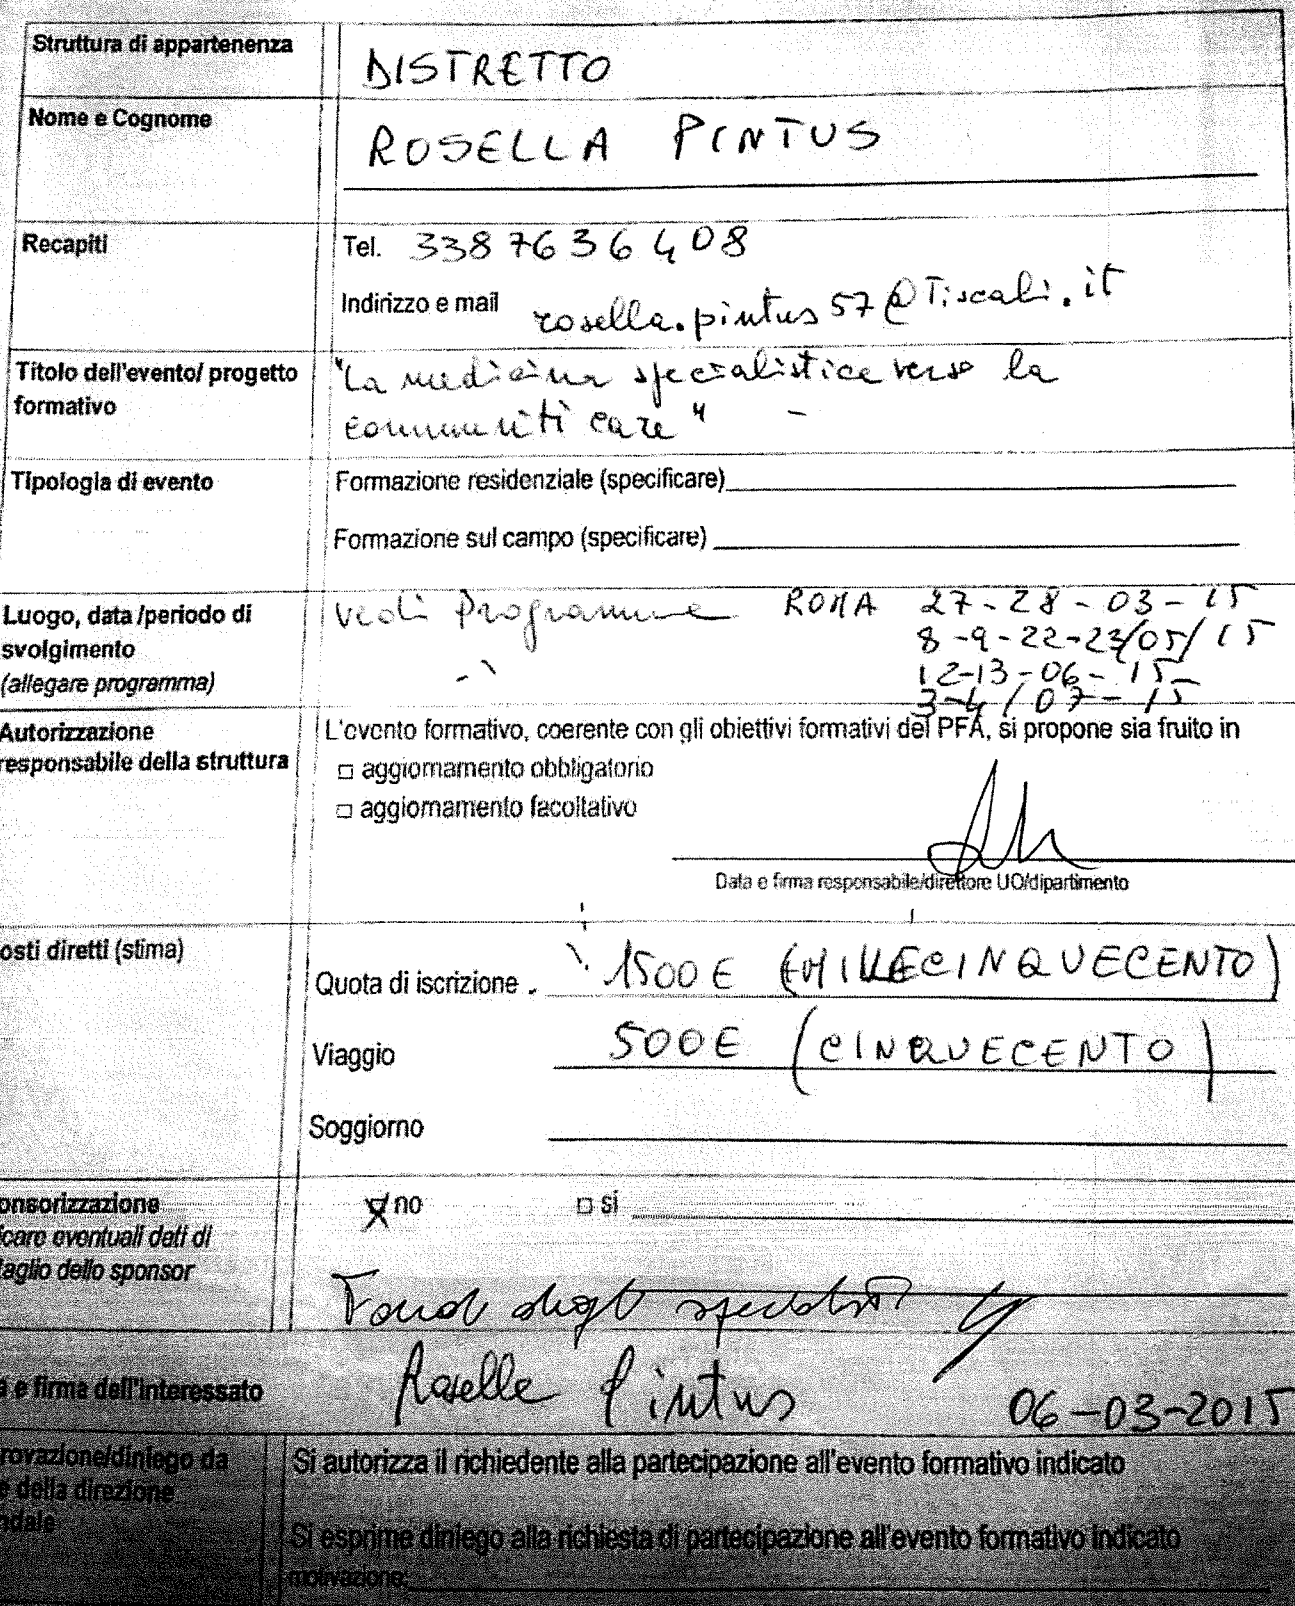 Struttura di appartenenza
DISTRETTO
Nome e Cognome
ROSELLA PINTUS
Recapiti
Tel. 338 7636408
Indirizzo e mail rosella.pintus57@Tiscali.it
Titolo dell'evento/ progetto
formativo
"La medicina specialistica verso la
communiti care"
Tipologia di evento
Formazione residenziale (specificare)
Formazione sul campo (specificare)
Luogo, data /periodo di
svolgimento
(allegare programma)
vedi Programma ROMA 27-28-03-15
8-9-22-23/05/15
12-13-06-15
3-4/07-15
Autorizzazione
responsabile della struttura
L'evento formativo, coerente con gli obiettivi formativi del PFA, si propone sia fruito in
□ aggiornamento obbligatorio
□ aggiornamento facoltativo
Data e firma responsabile/direttore UO/dipartimento
osti diretti (stima)
Quota di iscrizione 1500€ (MILLECINQUECENTO)
Viaggio 500€ (CINQUECENTO)
Soggiorno
onsorizzazione
icare eventuali dati di
taglio dello sponsor
no □ si
Fondi degli specialisti
a e firma dell'interessato
Rosella Pintus 06-03-2015
rovazione/diniego da
e della direzione
ndale
Si autorizza il richiedente alla partecipazione all'evento formativo indicato
Si esprime diniego alla richiesta di partecipazione all'evento formativo indicato
motivazione: